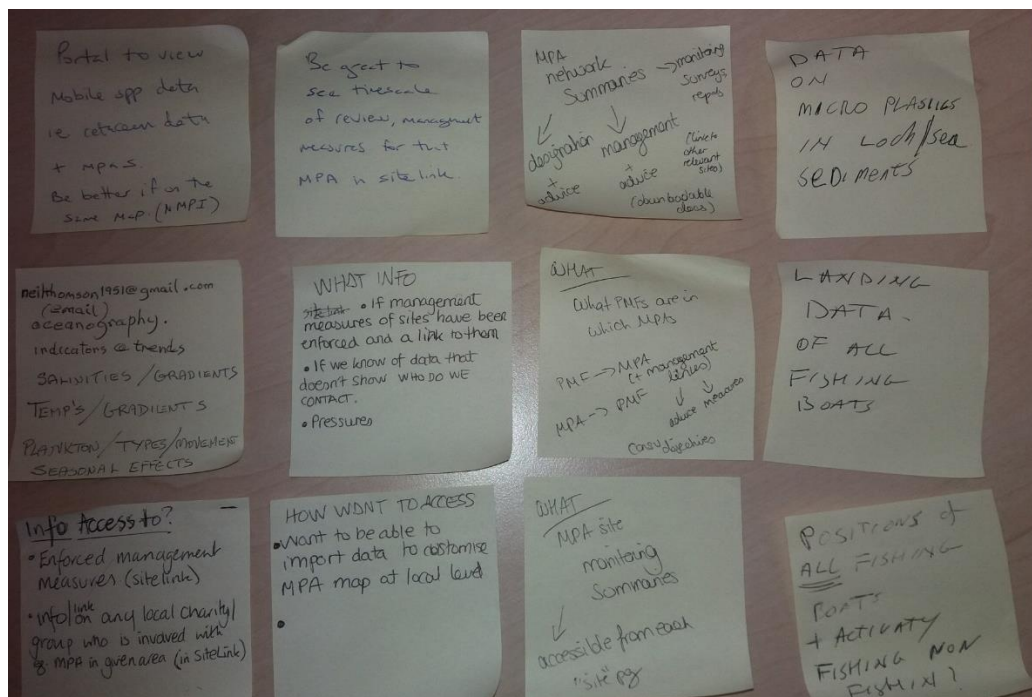 Portal to view
Mobile app data
ie cetacean data
+ MPAs.
Be better if on the
same map. (NMPI)
Be great to
see timescale
of review, management
measures for that
MPA in site link.
MPA
network
Summaries
→ monitoring
surveys
repots
designation
+
advice
management
+
advice
(downloadable
docs)
(link to
other
relevant
sites)
DATA
ON
MICRO PLASTICS
IN LOCH/sea
SEDIMENTS
neilthomson1951@gmail.com
(email)
oceanography.
indicators @ trends
SALINITIES / GRADIENTS
TEMP'S / GRADIENTS
PLANKTON / TYPES / MOVEMENT
SEASONAL EFFECTS
WHAT INFO
site link • If management
measures of sites have been
enforced and a link to them
• If we know of data that
doesn't show WHO DO WE
CONTACT.
• Pressures
WHAT
What PMFs are in
which MPAs
PMF → MPA
(+ management
links)
MPA → PMF
advice measures
consv objectives
LANDING
DATA.
OF ALL
FISHING
BOATS
Info Access to?
• Enforced management
measures (sitelink)
• info/link on any local charity/
group who is involved with
eg. MPA in given area (in SiteLink)
HOW WANT TO ACCESS
• Want to be able to
import data to costomise
MPA map at local level
•
WHAT
MPA site
monitoring
Summaries
accessible from each
"site" pg
POSITIONS of
ALL FISHING
BOATS
+ ACTIVATY
FISHING NON
FISHIN?